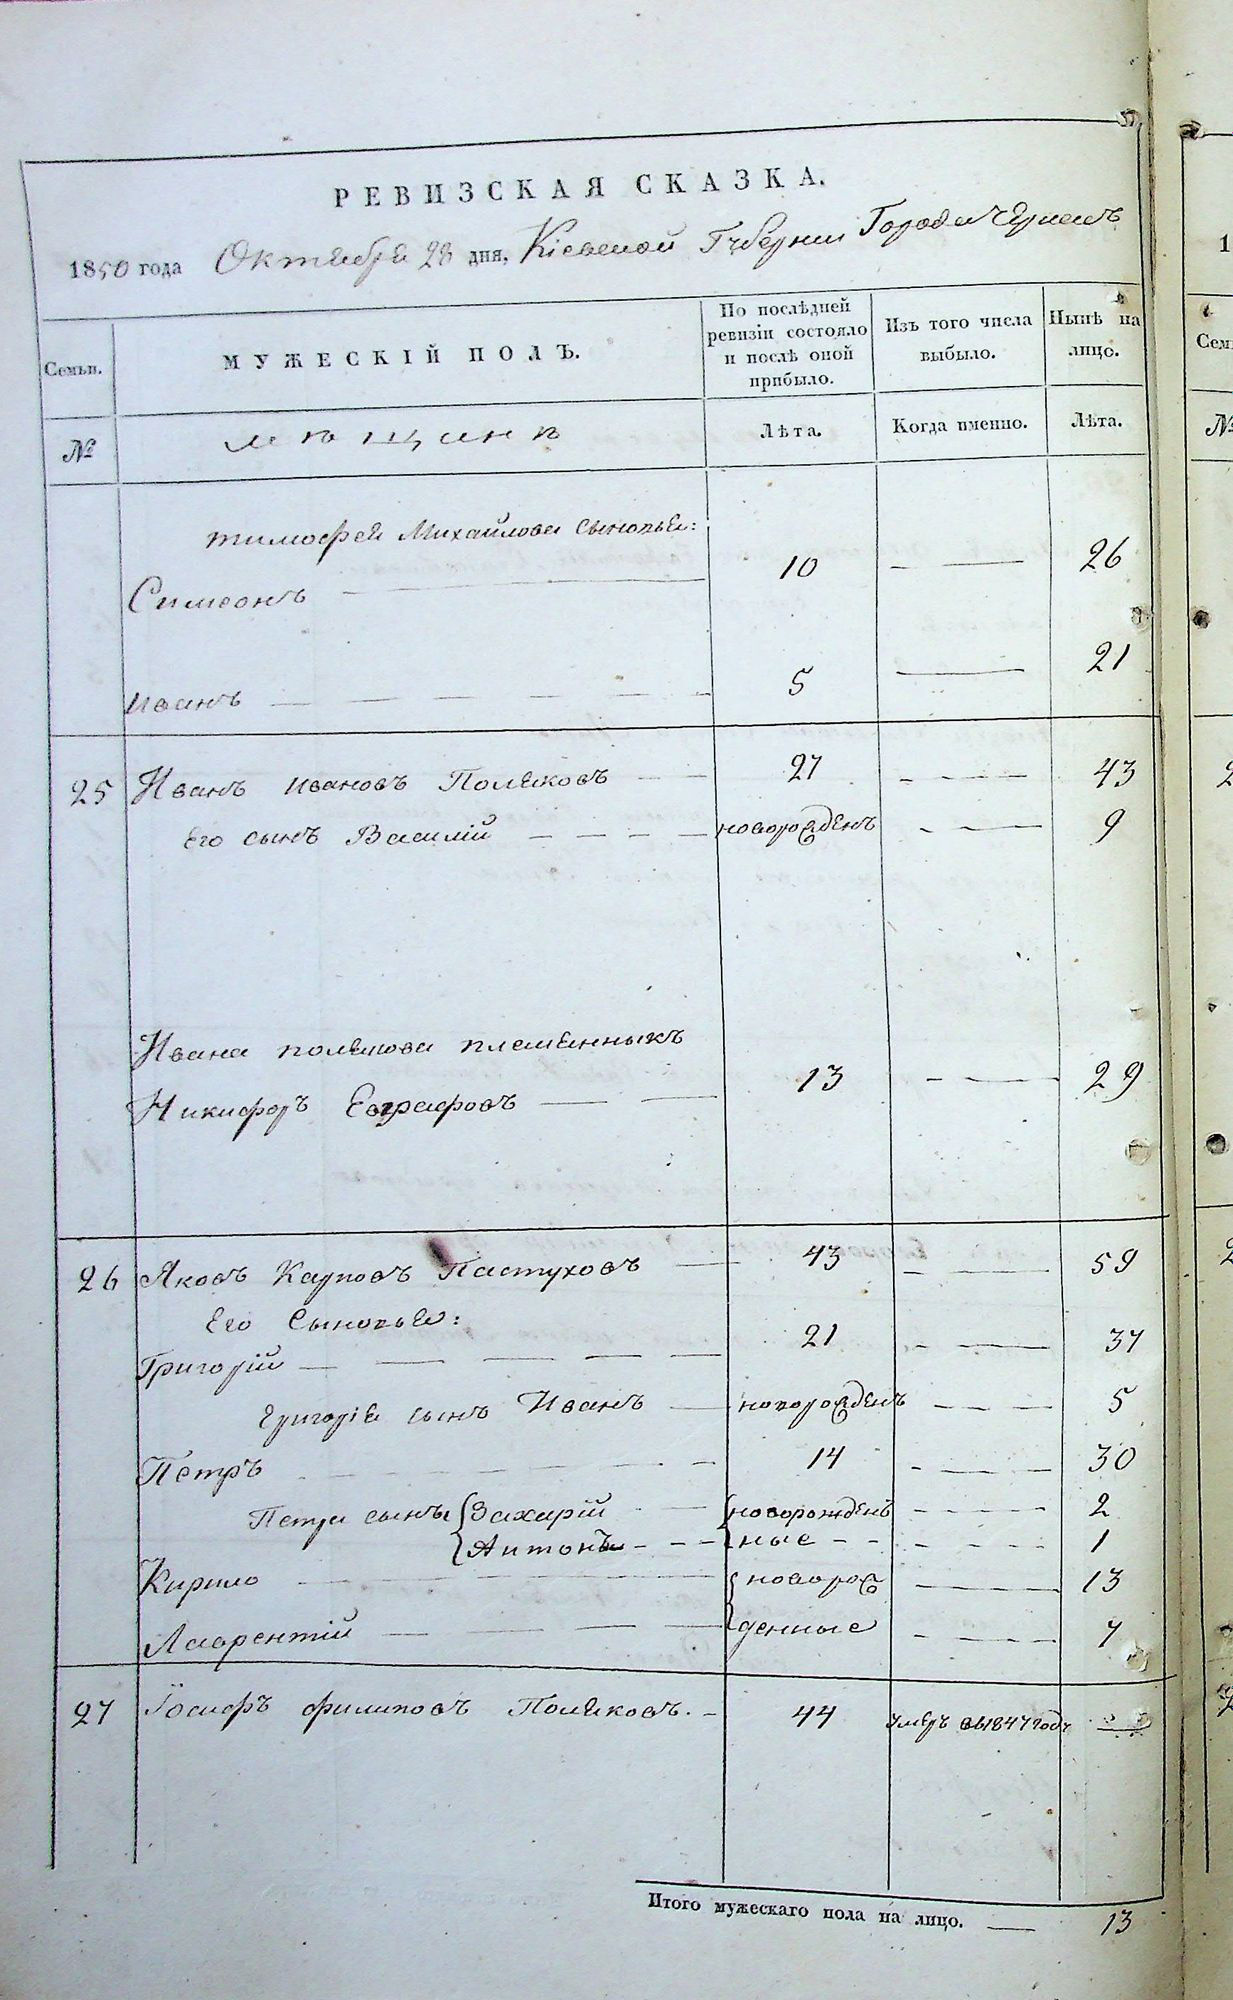 РЕВИЗСКАЯ СКАЗКА.
1850 года Октября 28 дня, Кіевской Губерніи Города
Семьи. МУЖЕСКІЙ ПОЛЪ. По послѣдней ревизіи состояло и послѣ оной прибыло. Изъ того числа выбыло. Нынѣ на лице.
№ мѣщанѣ Лѣта. Когда именно. Лѣта.
тимофея Михайлова сыновья:
Симеонъ — 10 — — 26
иванъ — — — — — 5 — — 21
25 Иванъ ивановъ Поляковъ — — 27 — — — 43
Его сынъ Василій — — — — новорожденъ — — — 9
Ивана полякова племянникъ
Никифоръ Евграфовъ — — 13 — — 29
26 Яковъ Карповъ Пастуховъ — 43 — — — 59
Его Сыновья:
Григорій — — — — — 21 — — — 37
григорія сынъ Иванъ — новорожденъ — — — 5
Петръ — — — — — — 14 — — — 30
Петра сыны { Захарій — новорожден — — — 2
Антонъ — — — ные — — — — — 1
Кирило — новорож — — 13
Лаврентій — — — — денные — — — 7
27 Іосифъ филиповъ Поляковъ. — 44 умеръ въ 1847 годѣ —
Итого мужескаго пола на лицо. — 13
1
Сем
№